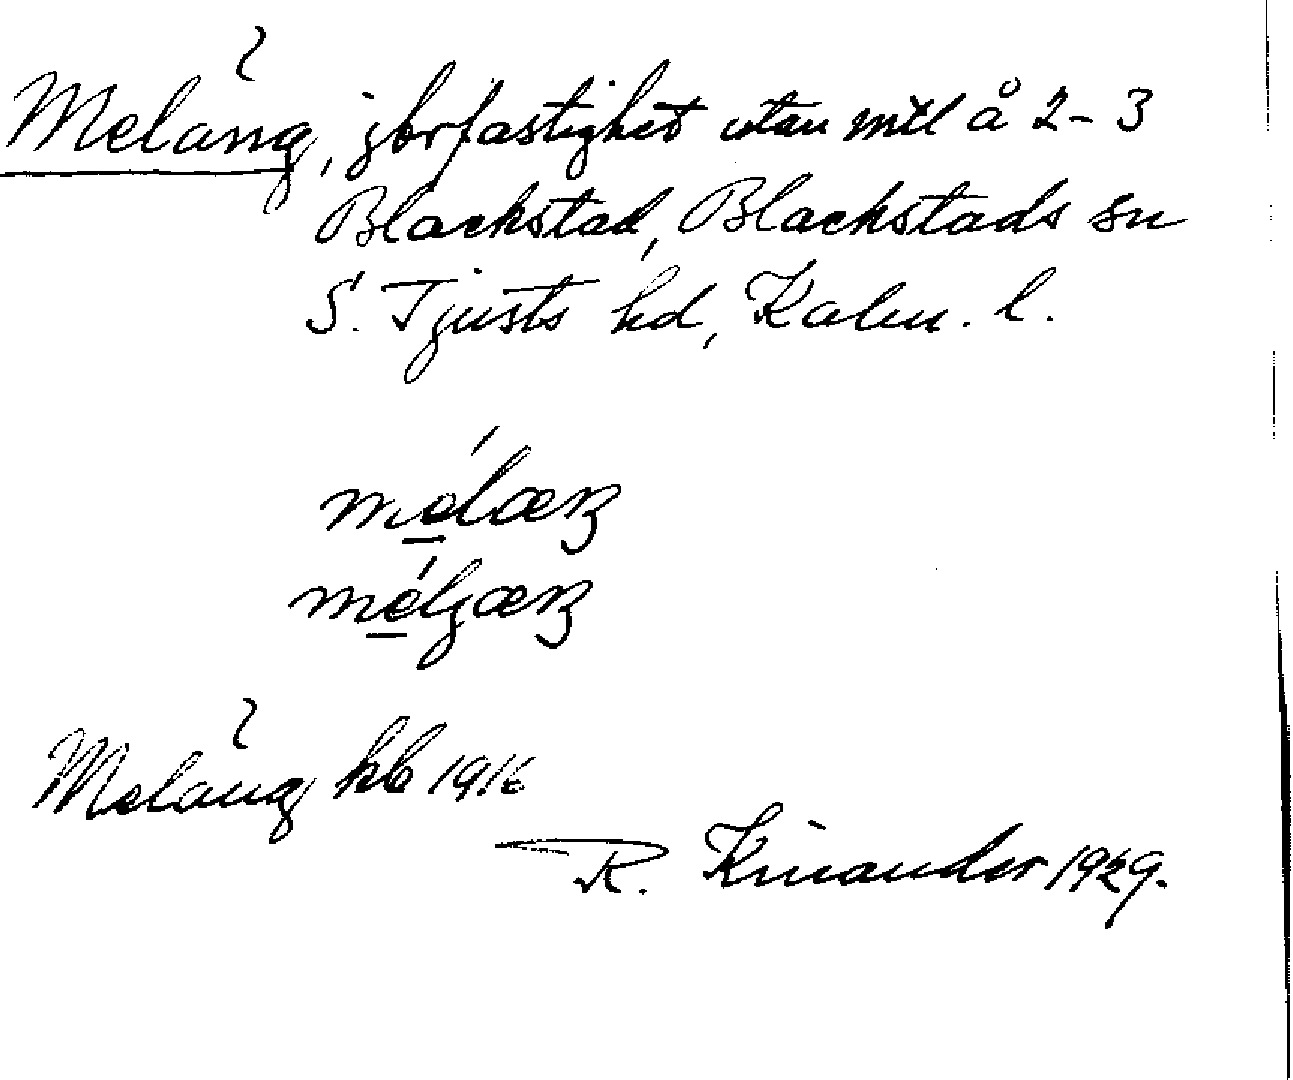 Melång, jordfastighet utan mtl å 2-3
Blackstad, Blackstads sn
S. Tjusts hd, Kalm. l.
mélæŋ
mélgæŋ
Melång kb 1916
R. Kinander 1929.